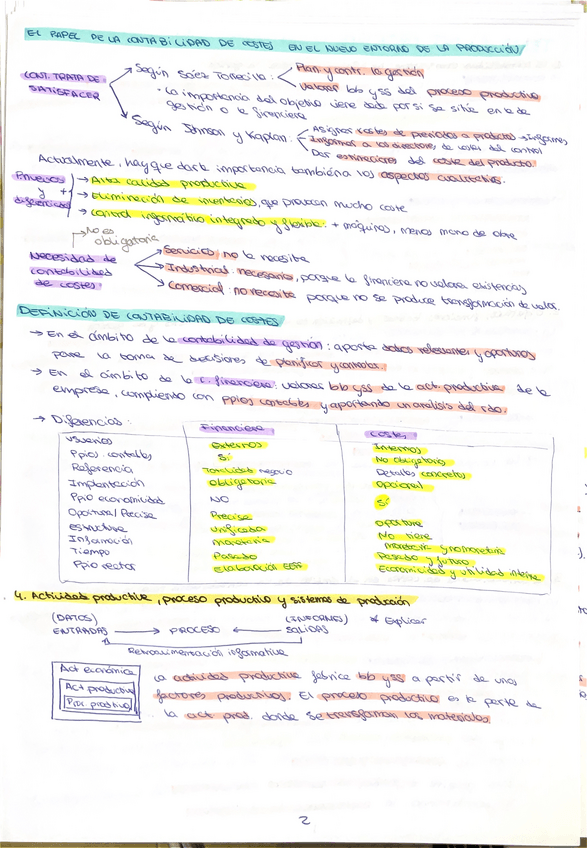 EL PAPEL DE LA CONTABILIDAD DE COSTES EN EL NUEVO ENTORNO DE LA PRODUCCIÓN/
CONT. TRATA DE SATISFACER
Según Sáez Torrecilla:
Plan y contr. la gestión
Valorar bb y ss del proceso productivo
· La importancia del objetivo viene dada por si se sitúe en la de
gestión o la financiera
Según Johnson y Kaplan:
Asignar costes de periodos a productos → Informes
Informar a los directores de costes del control
Dar estimaciones del coste del producto.
Actualmente, hay que darle importancia también a los aspectos cualitativos.
Primeros y ++ diferencias
→ Alta calidad productiva
→ Eliminación de inventarios, que provocan mucho coste
→ Control informativo integrado y flexible. + máquinas, menos mano de obra
→ No es obligatoria
Necesidad de contabilidad de costes:
Servicios: no la necesita
Industrial: necesario, porque la financiera no valora existencias
Comercial: no necesita porque no se produce transformación de valor.
DEFINICIÓN DE CONTABILIDAD DE COSTES
→ En el ámbito de la contabilidad de gestión: aporta datos relevantes y oportunos
para la toma de decisiones de planificar y controlar.
→ En el ámbito de la c. financiera: valorar bb y ss de la act. productiva de la
empresa, cumpliendo con ppios contables y aportando un análisis del rdo.
→ Diferencias:
Financiera Costes
Usuarios Externos Internos
Ppios contables Sí No obligatorio
Referencia Totalidad negocio Detalles concretos
Implantación Obligatoria Opcional
Ppio economicidad NO Sí
Oportuna/Precisa Precisa Oportuna
Estructura Unificada No tiene
Información Monetaria Monetaria y no monetaria
Tiempo Pasado Pasado y futuro
Ppio rector Elaboración EEFF Economicidad y utilidad interna
4. Actividad productiva, proceso productivo y sistemas de producción
(DATOS) (INFORMES) * Explicar
ENTRADAS → PROCESO ← SALIDAS
Retroalimentación informativa
Act económica
Act productiva
Proc. productivo
La actividad productiva fabrica bb y ss a partir de unos
factores productivos. El proceso productivo es la parte de
la act prod. donde se transforman los materiales.
2